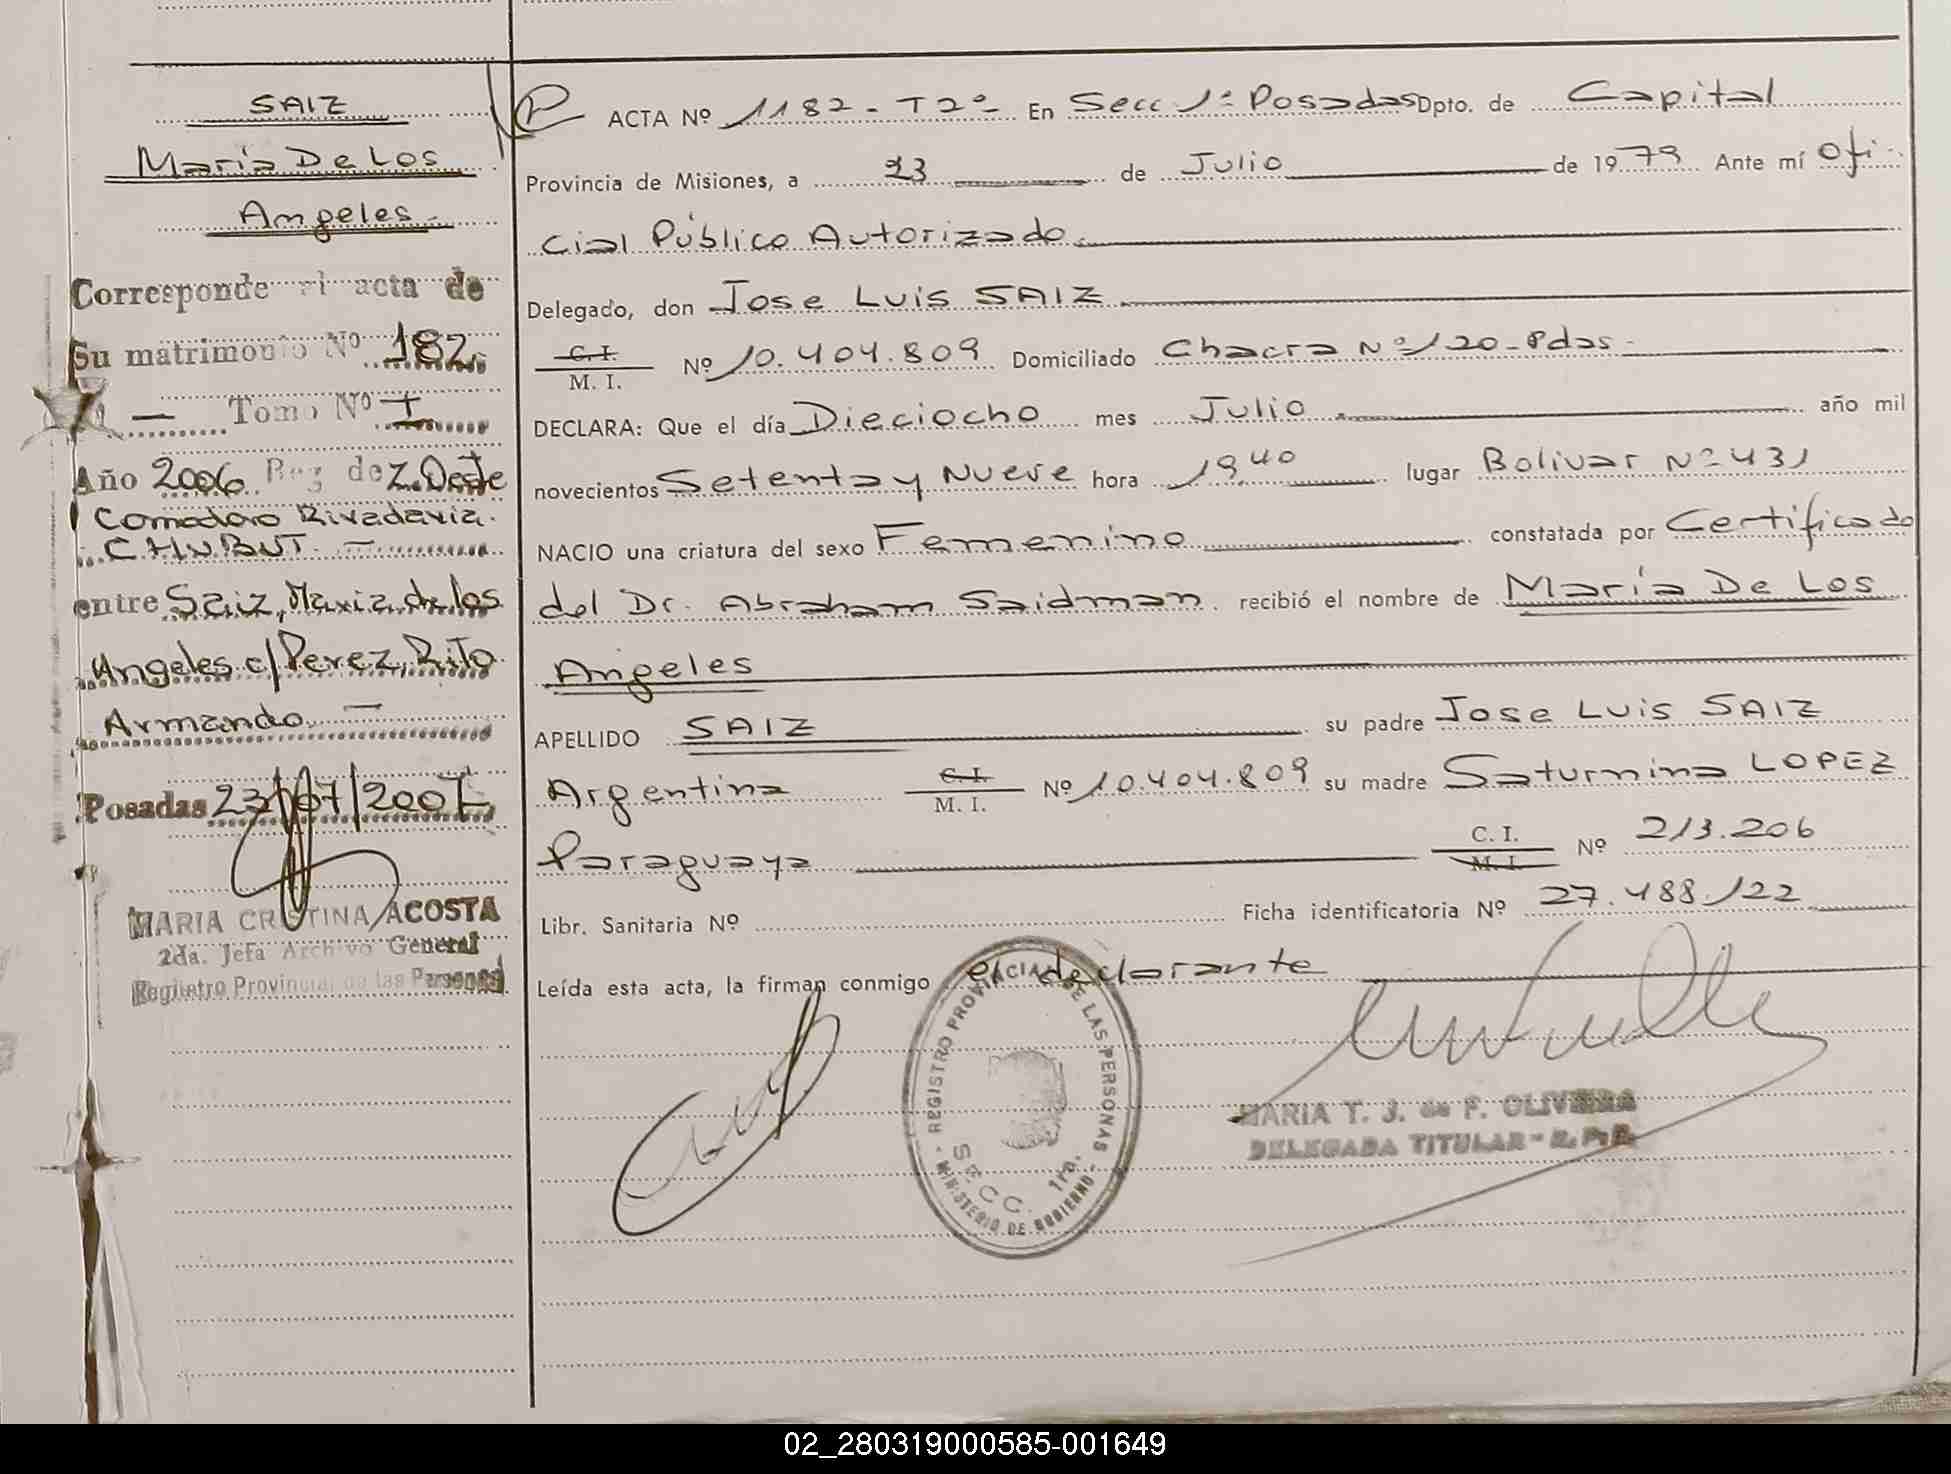 SAIZ
María De Los
Angeles
Corresponde el acta de
Su matrimonio Nº 182
— Tomo Nº I
Año 2006 Reg de Z. Oeste
Comodoro Rivadavia.
CHUBUT. —
entre Saiz, Maria de los
Angeles c/ Perez, Rito
Armando. —
Posadas 23/07/2007
MARIA CRISTINA ACOSTA
2da. Jefa Archivo General
Registro Provincial de las Personas
ACTA Nº 1182 - T2º En Secc 1ª Posadas Dpto. de Capital
Provincia de Misiones, a 23 de Julio de 1979 Ante mí Ofi-
cial Público Autorizado
Delegado, don Jose Luis SAIZ
C. I.
M. I. Nº 10.404.809 Domiciliado Chacra Nº 120 - Pdas -
DECLARA: Que el día Dieciocho mes Julio año mil
novecientos Setenta y Nueve hora 19,40 lugar Bolivar Nº 431
NACIO una criatura del sexo Femenino constatada por Certificado
del Dr. Abraham Saidman recibió el nombre de María De Los
Angeles
APELLIDO SAIZ su padre Jose Luis SAIZ
Argentina C. I. M. I. Nº 10.404.809 su madre Saturnina LOPEZ
Paraguaya C. I. M. I. Nº 213.206
Libr. Sanitaria Nº Ficha identificatoria Nº 27.488.122
Leída esta acta, la firman conmigo el declarante
REGISTRO PROVINCIAL DE LAS PERSONAS
SECC. 1ra.
- MINISTERIO DE GOBIERNO -
MARIA T. J. de F. OLIVEIRA
DELEGADA TITULAR - R. P. P.
02_280319000585-001649